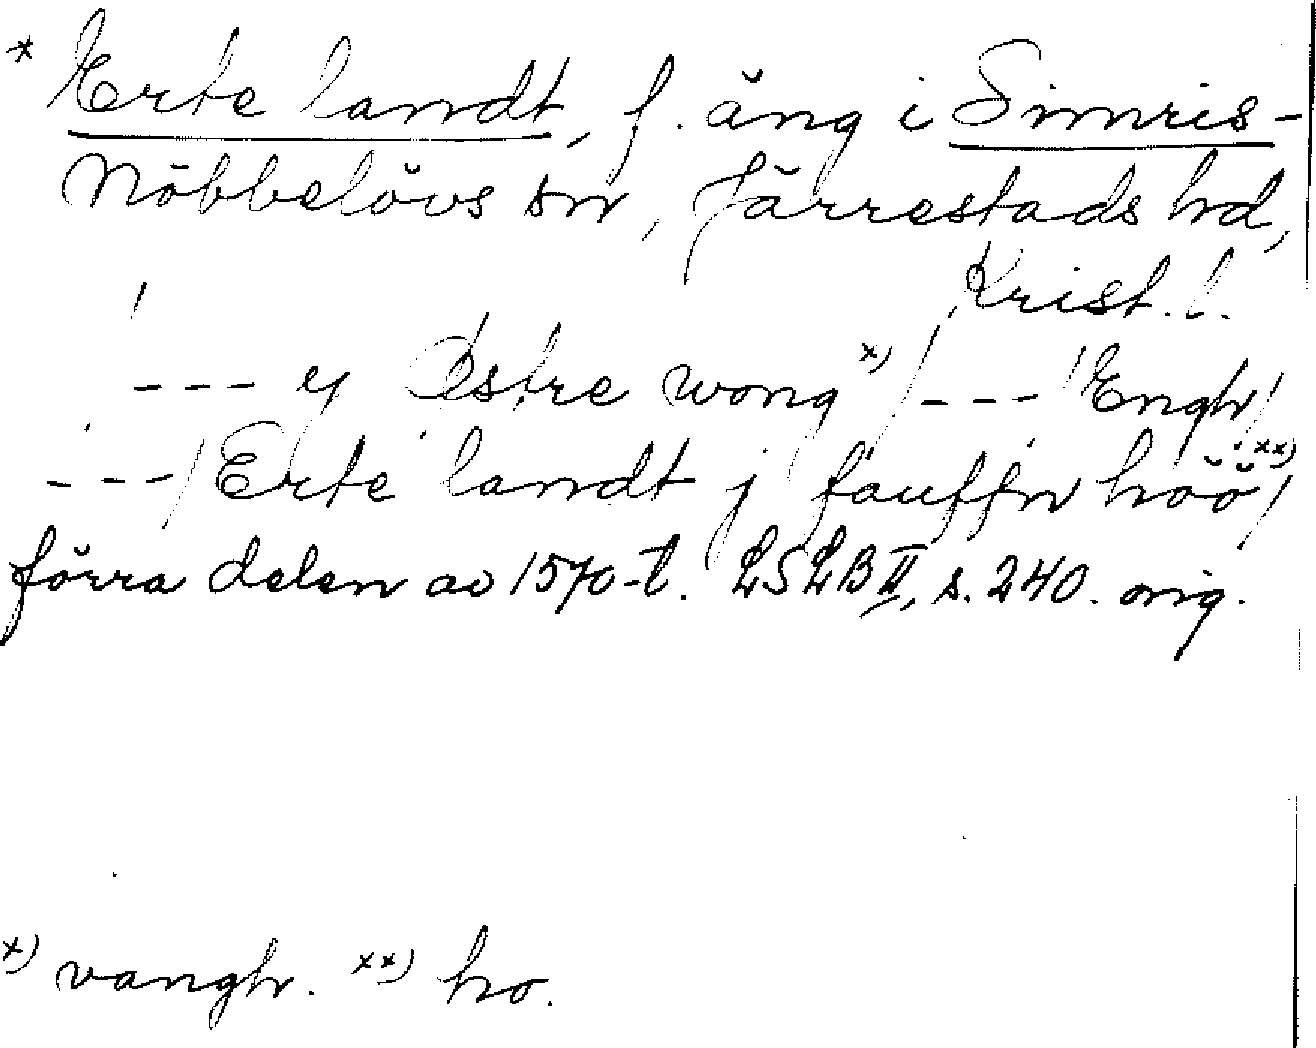 * Erte landt, f. äng i Simris-
Nöbbelövs sn, Järrestads hd,
Krist. l.
--- ey Østre wong x) / --- / Engh /
--- / Erte landt j fauffn höö xx) /
förra delen av 1570-t. LSLB II, s. 240. orig.
x) vangh. xx) ho.